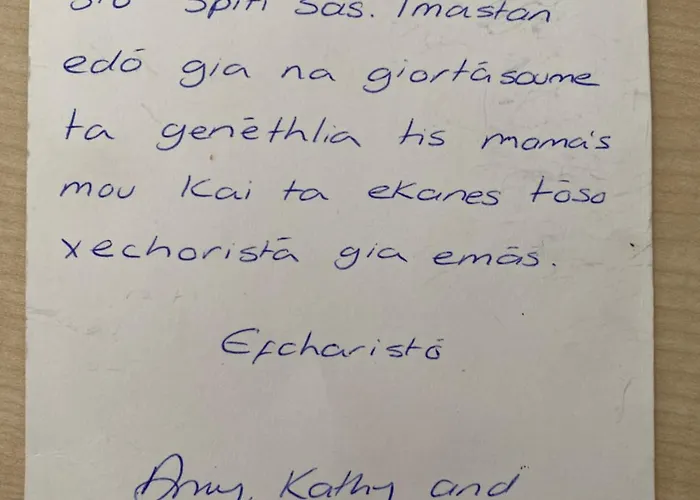 sto spíti sas. Ímastan
edō gia na giortāsoume
ta genēthlia tis mamás
mou kai ta ekanes tōso
xechoristā gia emās.
Efcharistō
Amy, Kathy and